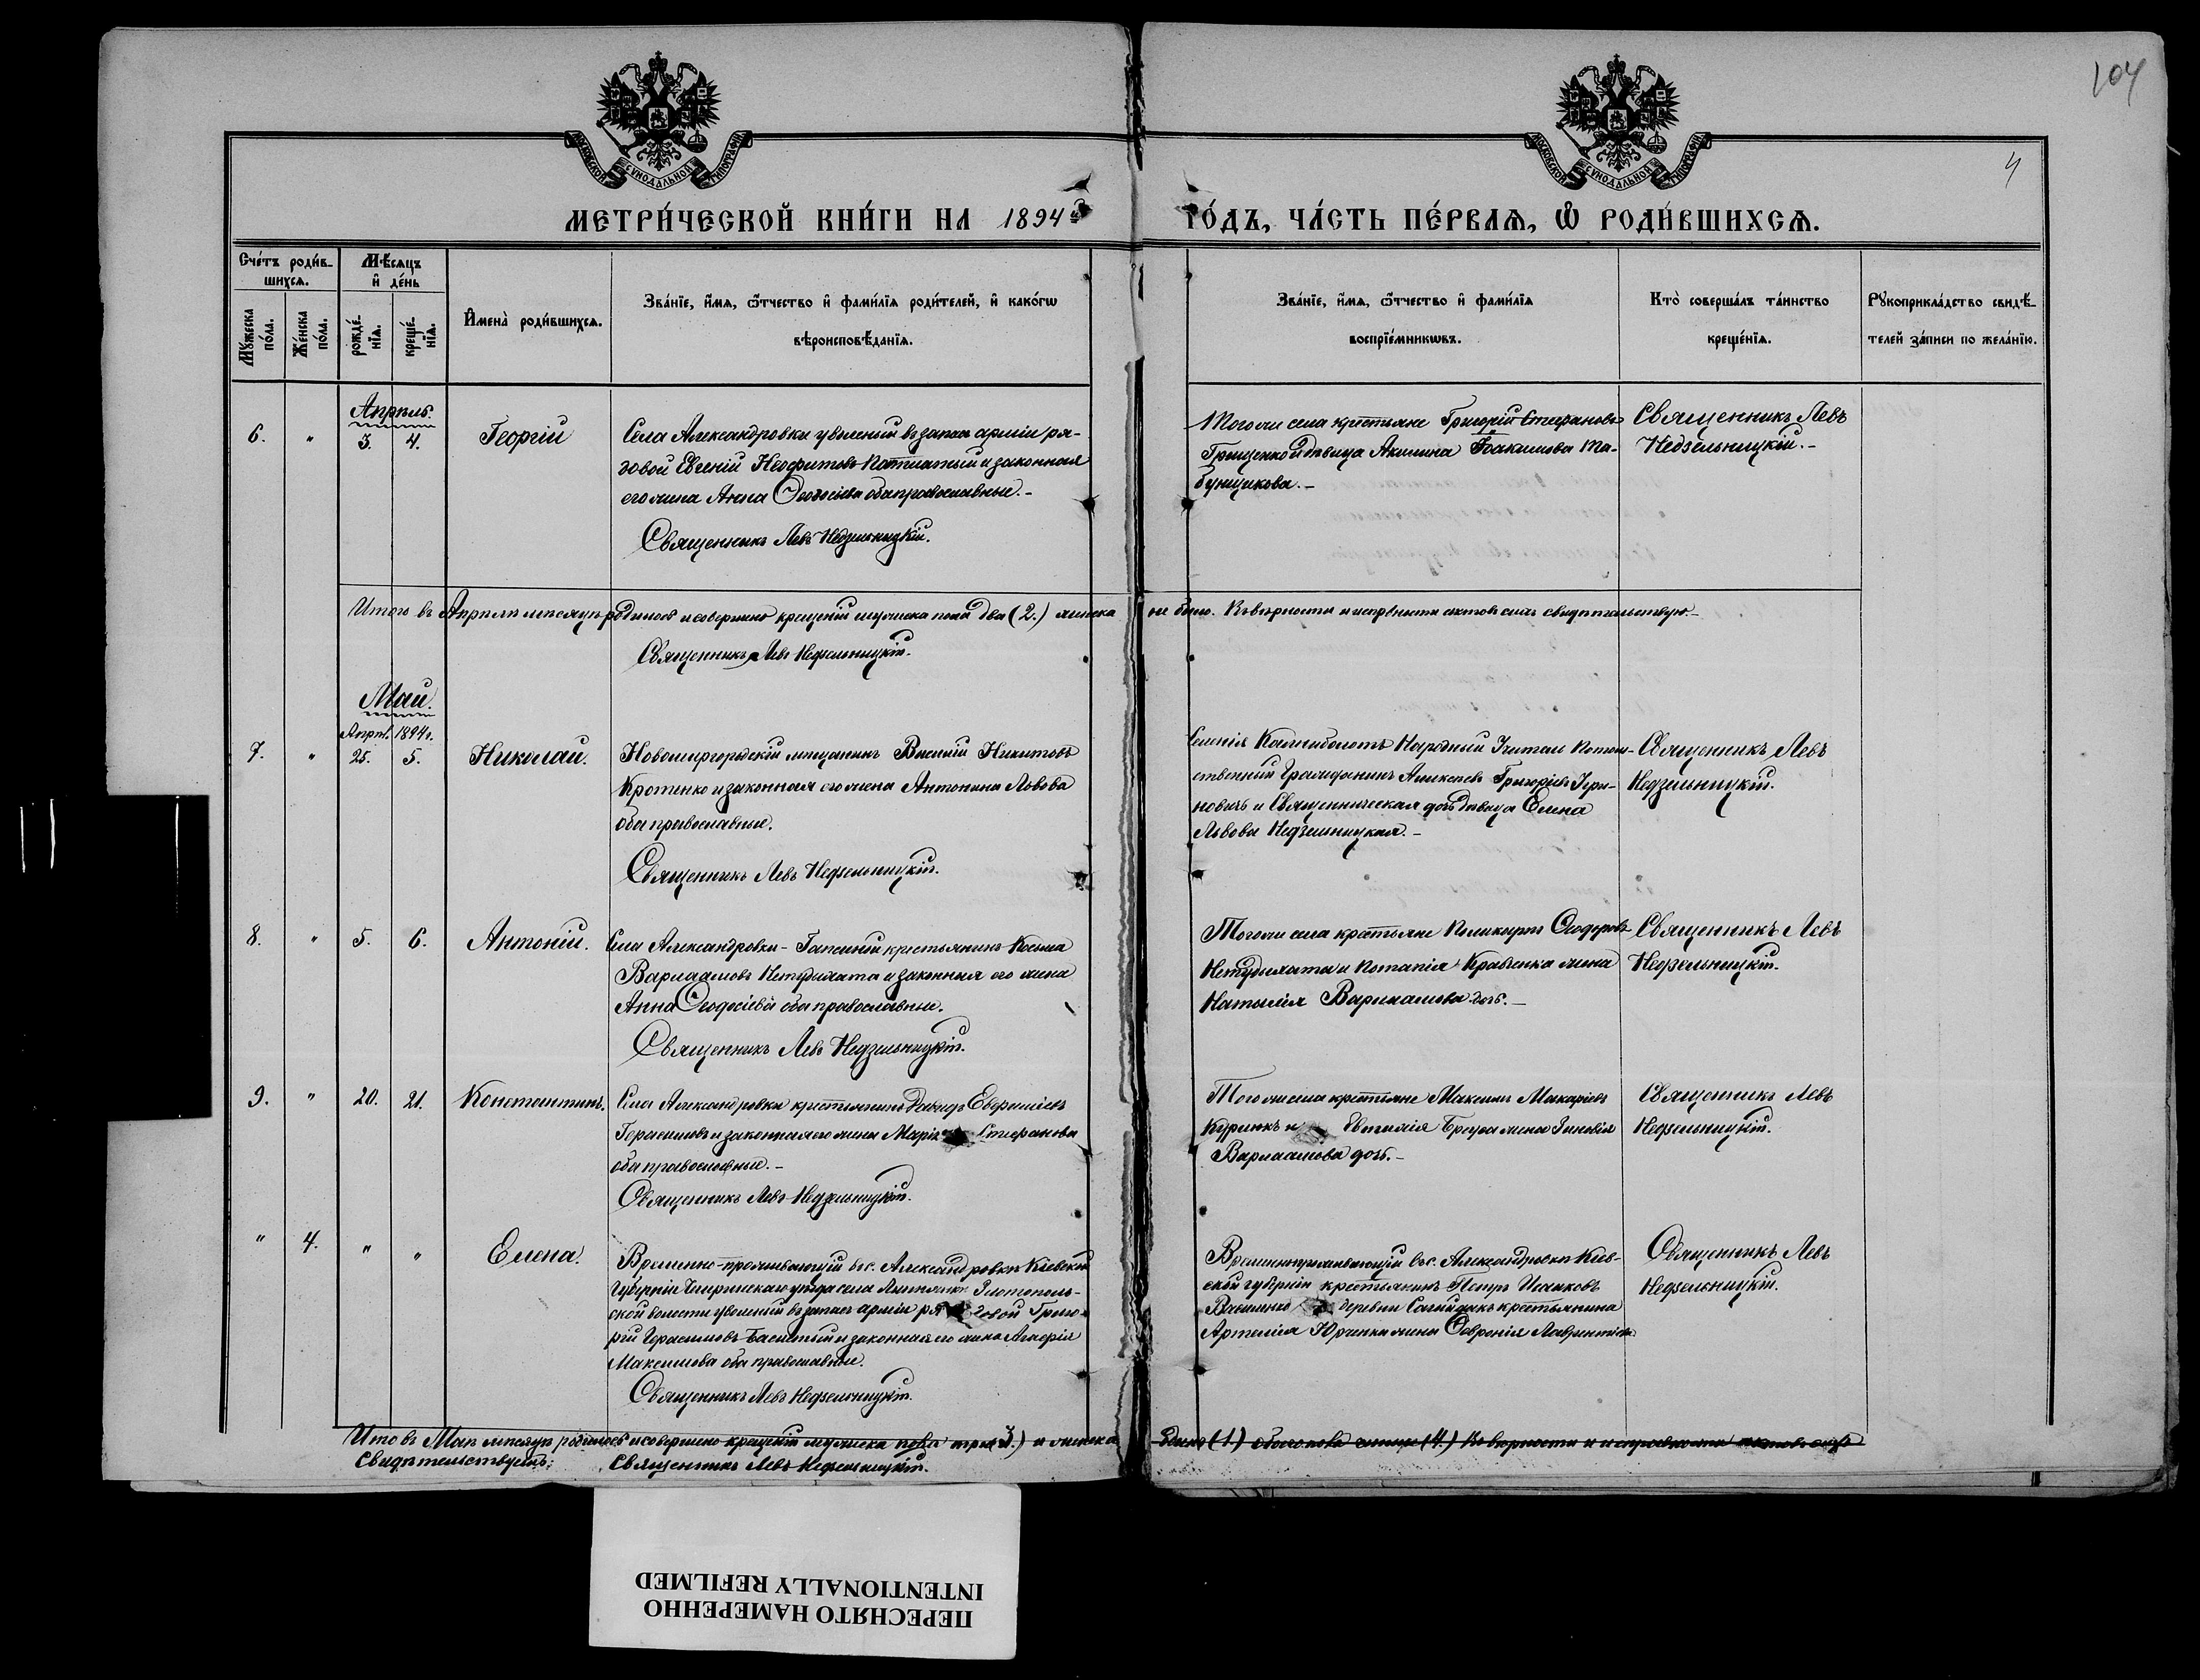 104
4
МОСКОВСКОЙ СѴНОДАЛЬНОЙ ТИПОГРАФІИ
МОСКОВСКОЙ СѴНОДАЛЬНОЙ ТИПОГРАФІИ
МЕТРИ́ЧЕСКОЙ КНИ́ГИ НА 1894й ГО́ДЪ, ЧА́СТЬ ПЕ́РВАѦ, Ѡ҆ РОДИ́ВШИХСѦ.
Сче́тъ роди́в-
шихсѧ.
Мꙋ́жеска по́ла.
Же́нска по́ла.
Мѣ́сѧцъ
и҆ де́нь
рожде́-
нїѧ.
креще́-
нїѧ.
И҆мена̀ роди́вшихсѧ.
Зва́нїе, и҆́мѧ, ѻ҆́тчество и҆ фами́лїѧ роди́телей, и҆ како́гѡ
вѣроисповѣ́данїѧ.
Зва́нїе, и҆́мѧ, ѻ҆́тчество и҆ фами́лїѧ
воспрїе́мникѡвъ.
Кто̀ соверша́лъ та́инство
креще́нїѧ.
Рꙋкоприкла́дство свидѣ́-
телей за́писи по жела́нїю.
Апрѣль.
6. " 3. 4. Георгій
Села Александровки уволеный въ запас арміи ря-
довой Евгеній Неофитовъ и законная
его жена Анна Ѳеодосіева оба православные. -
Священникъ Левъ Недзельницкій.
Того же села крестьяне Григорій Стефановъ
Грищенко и дѣвица Акилина Іоакимова Та-
бунщикова. -
Священникъ Левъ
Недзельницкій. -
Итого въ Апрѣлѣ мѣсяцѣ родилось и совершено крещеній мужеска пола два (2.) женска не было. Въ вѣрности и исправности актовъ сихъ свидѣтельствую. -
Священникъ Левъ Недзельницкій.
Май.
Апрѣл. 1894 г.
7. " 25. 5. Николай.
Новомиргородскій мѣщанинъ Василій Никитовъ
Кротенко и законная его жена Антонина Львова
оба православные.
Священникъ Левъ Недзельницкій.
Селенія Калниболотъ Народный Учитель Потом-
ственный Гражданинъ Алексѣевъ Григорьевъ
новичъ и Священническая дочь дѣвица Елена
Львова Недзельницкая. -
Священникъ Левъ
Недзельницкій.
8. " 5. 6. Антоній.
Села Александровки - крестьянинъ Косьма
Варлаамовъ Нетудыхата и законная его жена
Анна Ѳеодосіева оба православные.
Священникъ Левъ Недзельницкій.
Того же села крестьяне Поликарпъ Ѳеодоровъ
Нетудыхата и Потапія Кравченка жена
Наталія Варлаамова дочь. -
Священникъ Левъ
Недзельницкій.
9. " 20. 21. Константинъ.
Села Александровки крестьянинъ Давидъ
Герасимовъ и законная его жена Марія Стефанова
оба православные. -
Священникъ Левъ Недзельницкій.
Того же села крестьяне Максимъ Макаріевъ
и Евтихія жена Зиновія
Варлаамова дочь. -
Священникъ Левъ
Недзельницкій.
" 4. " " Елена.
Временно-проживающій въ с. Александровкѣ Кіевской
Губерніи Чигиринскаго уѣзда села Златополь-
ской волости уволеный въ запасъ арміи рядовой Григо-
рій Герасимовъ и законная его жена Агафія
Максимова оба православные.
Священникъ Левъ Недзельницкій.
Временнопроживающій въ с. Александровкѣ Кіев-
ской губерніи крестьянинъ Петръ Исааковъ
деревни крестьянина
Артемія жена Ѳевронія Лаврентіева.
Священникъ Левъ
Недзельницкій.
Итого въ Маѣ мѣсяцѣ родилось и совершено крещеній мужеска пола три (3.) и женска одно (1) обоего пола четыре (4.) Въ вѣрности и исправности актовъ сихъ
Свидѣтельствуетъ: Священникъ Левъ Недзельницкій.
ПЕРЕСНЯТО НАМЕРЕННО
INTENTIONALLY REFILMED